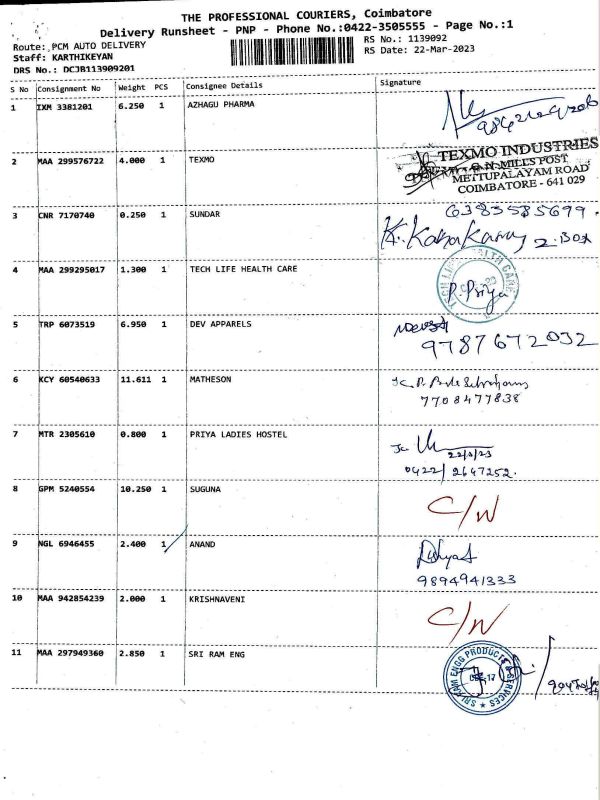 THE PROFESSIONAL COURIERS, Coimbatore
Delivery Runsheet - PNP - Phone No.:0422-3505555 - Page No.:1
Route: PCM AUTO DELIVERY
RS No.: 1139092
Staff: KARTHIKEYAN
RS Date: 22-Mar-2023
DRS No.: DCJB113909201
S No Consignment No Weight PCS Consignee Details Signature
1 IXM 3381201 6.250 1 AZHAGU PHARMA
2 MAA 299576722 4.000 1 TEXMO
TEXMO INDUSTRIES
G.N. MILLS POST
METTUPALAYAM ROAD
COIMBATORE - 641 029
3 CNR 7170740 0.250 1 SUNDAR
6383585699.
2. Box
4 MAA 299295017 1.300 1 TECH LIFE HEALTH CARE
TECH LIFE HEALTH CARE
P. Priya
5 TRP 6073519 6.950 1 DEV APPARELS
9787672032
6 KCY 60540633 11.611 1 MATHESON
7708477838
7 MTR 2305610 0.800 1 PRIYA LADIES HOSTEL
22/3/23
0422/2647252.
8 GPM 5240554 10.250 1 SUGUNA
C/W
9 NGL 6946455 2.400 1 ANAND
9894941333
10 MAA 942854239 2.000 1 KRISHNAVENI
C/W
11 MAA 297949360 2.850 1 SRI RAM ENG
SRI RAM ENGG PRODUCTS & SERVICES